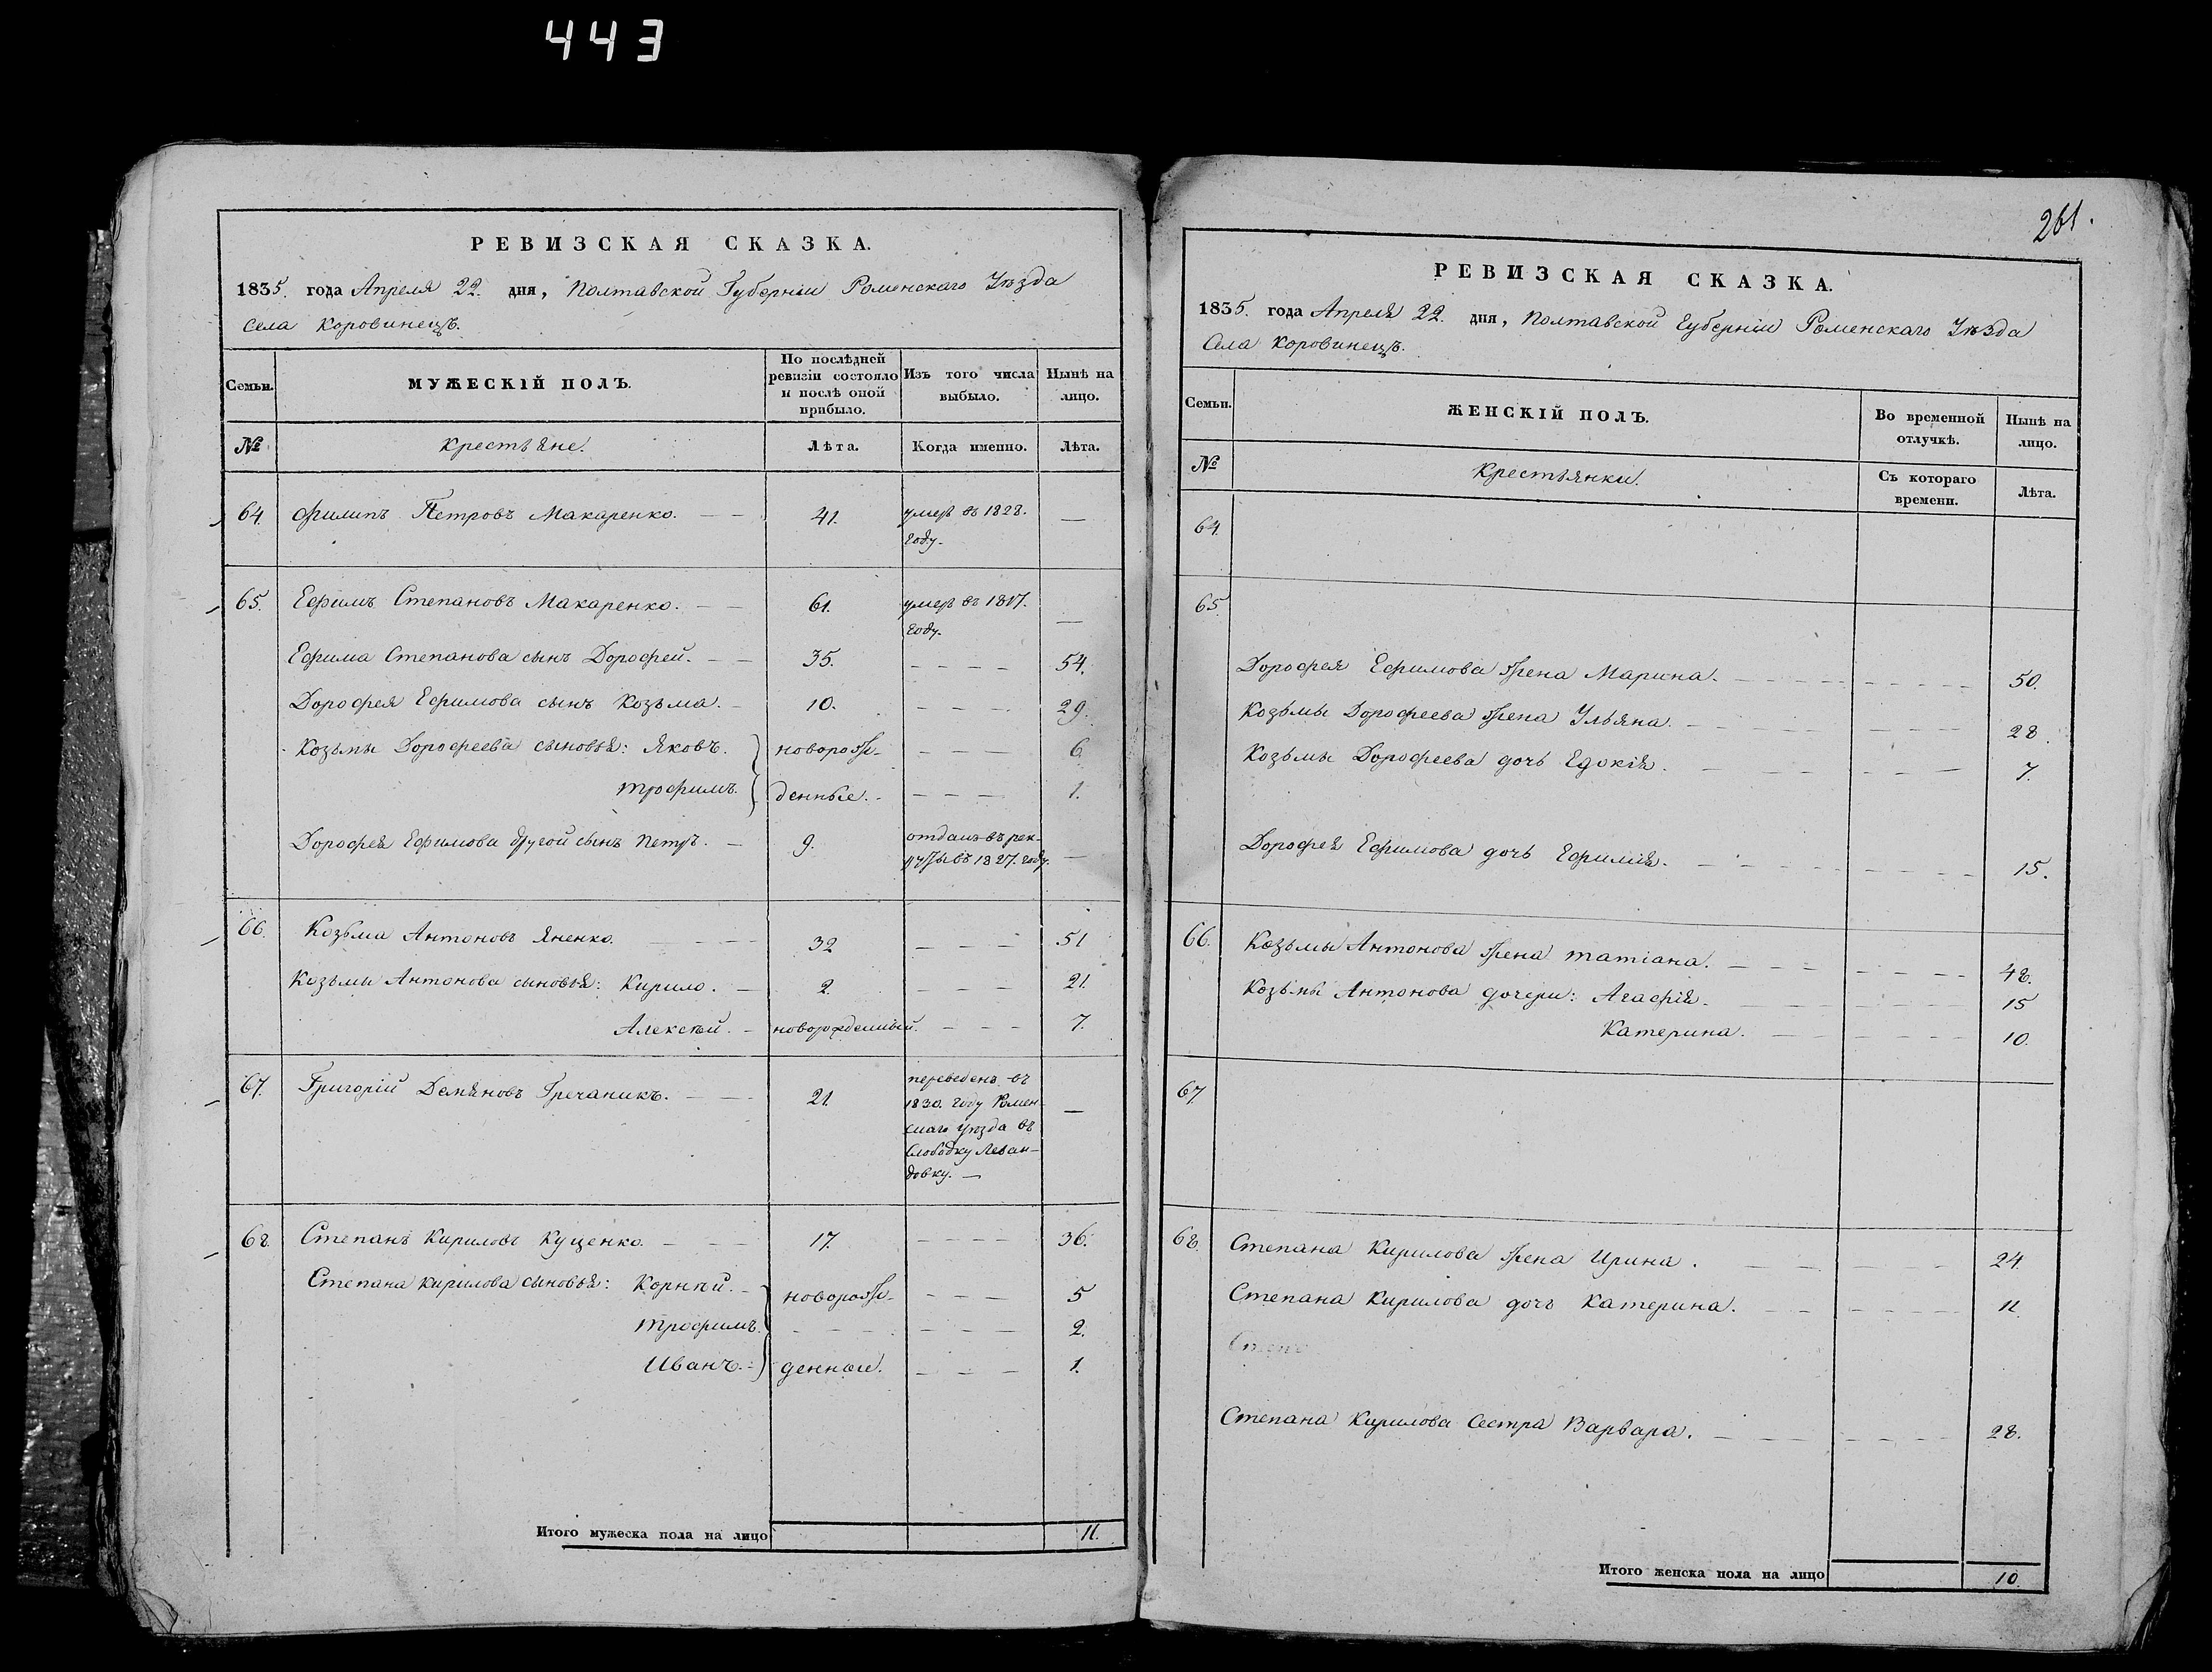 443
РЕВИЗСКАЯ СКАЗКА.
1835. года Апреля 22. дня, Полтавской Губерніи Роменскаго Уѣзда
села Коровинецъ.
Семьи.
МУЖЕСКІЙ ПОЛЪ.
По послѣдней ревизіи состояло и послѣ оной прибыло.
Изъ того числа выбыло.
Нынѣ на лицо.
№
Крестьяне.
Лѣта.
Когда именно.
Лѣта.
64. Филипъ Петровъ Макаренко. — — 41. умеръ въ 1828. —
году.
65. Ефимъ Степановъ Макаренко. — — 61. умеръ въ 1817. —
году.
Ефима Степанова сынъ Дорофей. — — 35. — — — — 54.
Дорофея Ефимова сынъ Козьма. — 10. — — — 29.
Козьмы Дорофеева сыновья: Яковъ. новорож- — — — 6
Трофимъ. денные. — — — 1.
Дорофея Ефимова другой сынъ Петръ. — 9. отданъ въ рек-
руты въ 1827. году. —
66. Козьма Антоновъ Яненко. — — — 32 — — — 51
Козьмы Антонова сыновья: Кирило. — 2. — — — 21.
Алексѣй. — новорожденный. — — — 7.
67. Григорій Демяновъ Гречаникъ. — — 21. переведенъ въ
1830. году Ромен- —
скаго уѣзда въ
слободку Леван-
довку. —
68. Степанъ Кириловъ Куценко. — — — 17. — — — — 36.
Степана Кирилова сыновья: Корнѣй. — новорож- — — — 5
Трофимъ. — — — — — — — 2.
Иванъ. — денные. — — — 1.
Итого мужеска пола на лицо 11.
261.
РЕВИЗСКАЯ СКАЗКА.
1835. года Апреля 22. дня, Полтавской Губерніи Роменскаго Уѣзда
Села Коровинецъ.
Семьи.
ЖЕНСКІЙ ПОЛЪ.
Во временной отлучкѣ.
Нынѣ на лицо.
№
Крестьянки.
Съ котораго времени.
Лѣта.
64.
65.
Дорофея Ефимова жена Марина. — — — — — — — — 50.
Козьмы Дорофеева жена Ульяна. — — — — — — — 28.
Козьмы Дорофеева дочь Едокія. — — — — — — — 7.
Дорофея Ефимова дочь Ефимія. — — — — — — — 15.
66. Козьмы Антонова жена Татіана. — — — — — — — 48.
Козьмы Антонова дочери: Агафія. — — — — — — — 15
Катерина. — — — — — — 10.
67.
68. Степана Кирилова жена Ирина. — — — — — — 24.
Степана Кирилова дочь Катерина. — — — — — — — 11.
Степана Кирилова Сестра Варвара. — — — — — — — 28.
Итого женска пола на лицо 10.